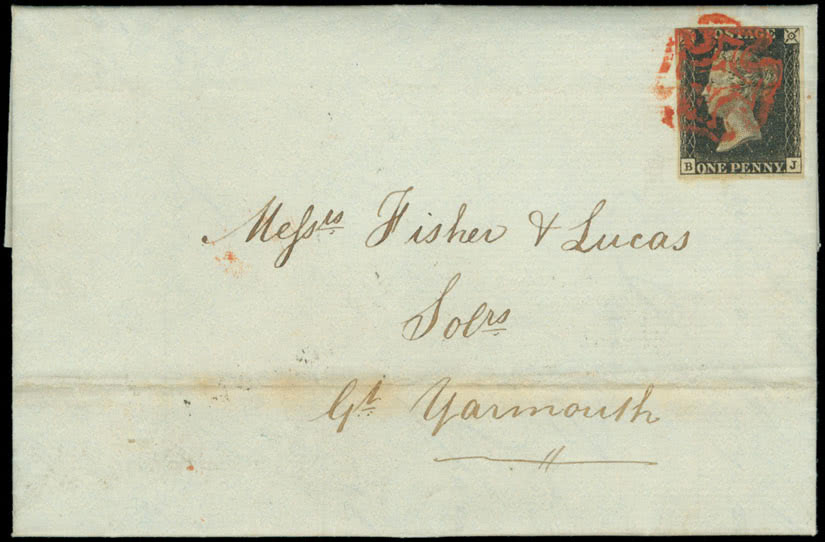 POSTAGE
B ONE PENNY J
Messrs Fisher & Lucas
Solrs
Gt Yarmouth